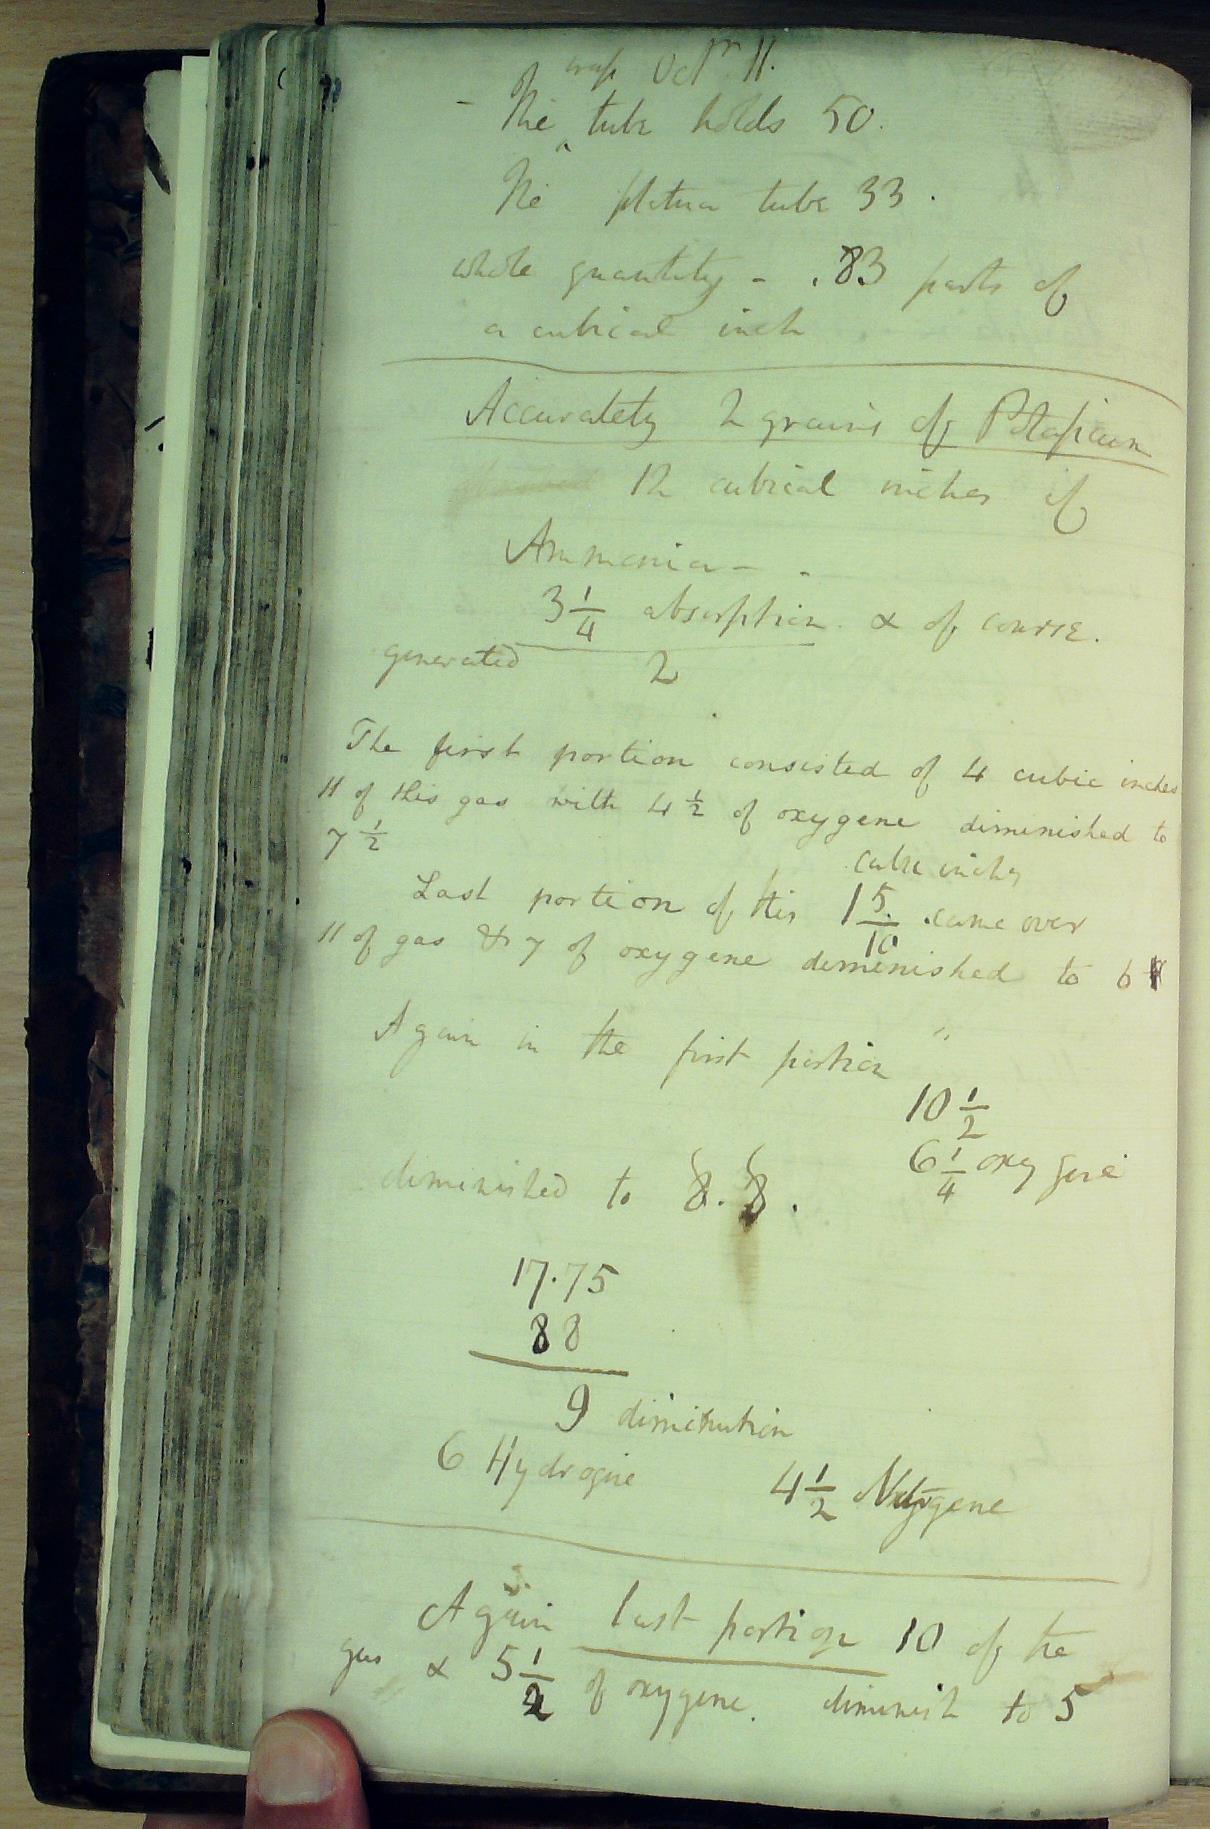 Octr. 11.
- The ^ of brass tube holds 50.
The platina tube 33.
whole quantity - .83 parts of
a cubical inch
Accurately 2 grains of Potassium
12 cubical inches of
Ammonia - -
3 1/4 absorption. & of course.
generated 2
The first portion consisted of 4 cubic inches
11 of this gas with 4 1/2 of oxygene diminished to
7 1/2
cubic inches
Last portion of this 1 5/10 came over
11 of gas & 7 of oxygene diminished to 6
Again in the first portion "
10 1/2
6 1/4 oxygene
diminished to 8.8.
17.75
88
9 diminution
6 Hydrogene 4 1/2 Nitrogene
Again last portion 10 of the
gas & 5 1/2 of oxygene. diminish to 5